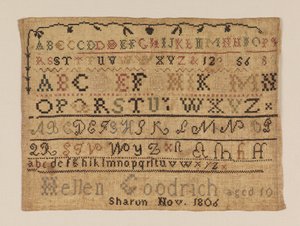 ABCCDDDEFGHIJKLMNNOPR
RSSTTUVWXYZ&12 56 8
ABC EF HIK MN
OPQRSTUVWXYZ×
ABCDEFGHIJKLMNOP
QR STV WYZ
abcdefghiklmnopqrstuvwxyz
Hellen Goodrich aged 10
Sharon Nov. 1806